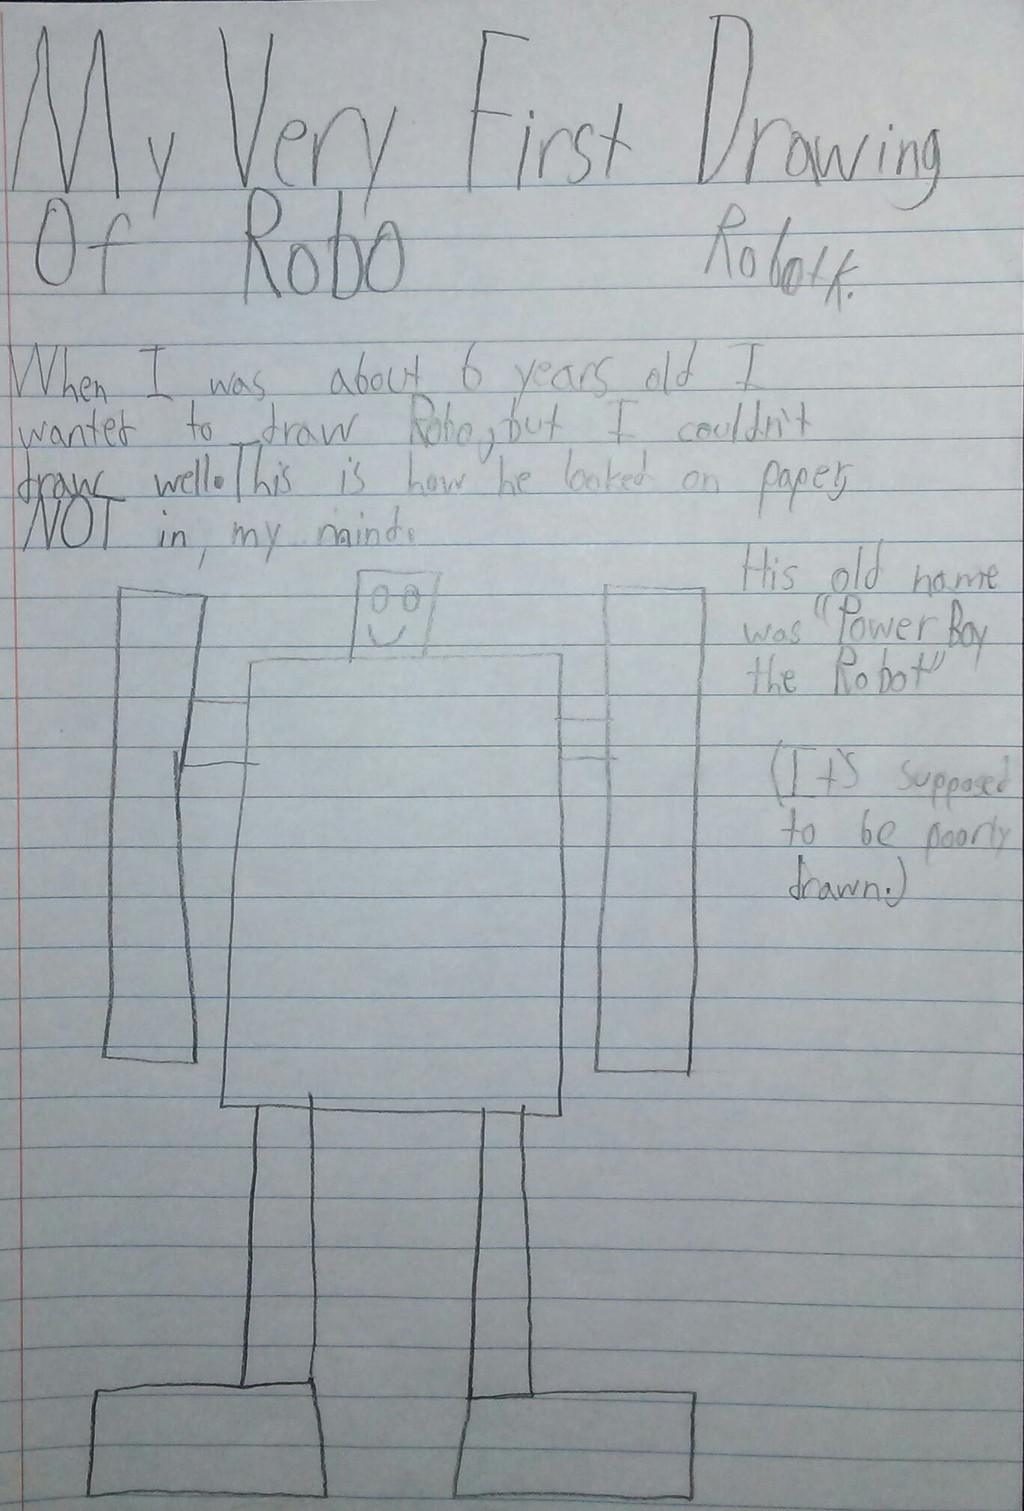 My Very First Drawing
Of Robo
Robotk.
When I was about 6 years old I
wanted to draw Robo, but I couldn't
draw well. This is how he looked on paper,
NOT in, my mind.
His old name
was "Power Boy
the Robot"
(It's supposed
to be poorly
drawn.)